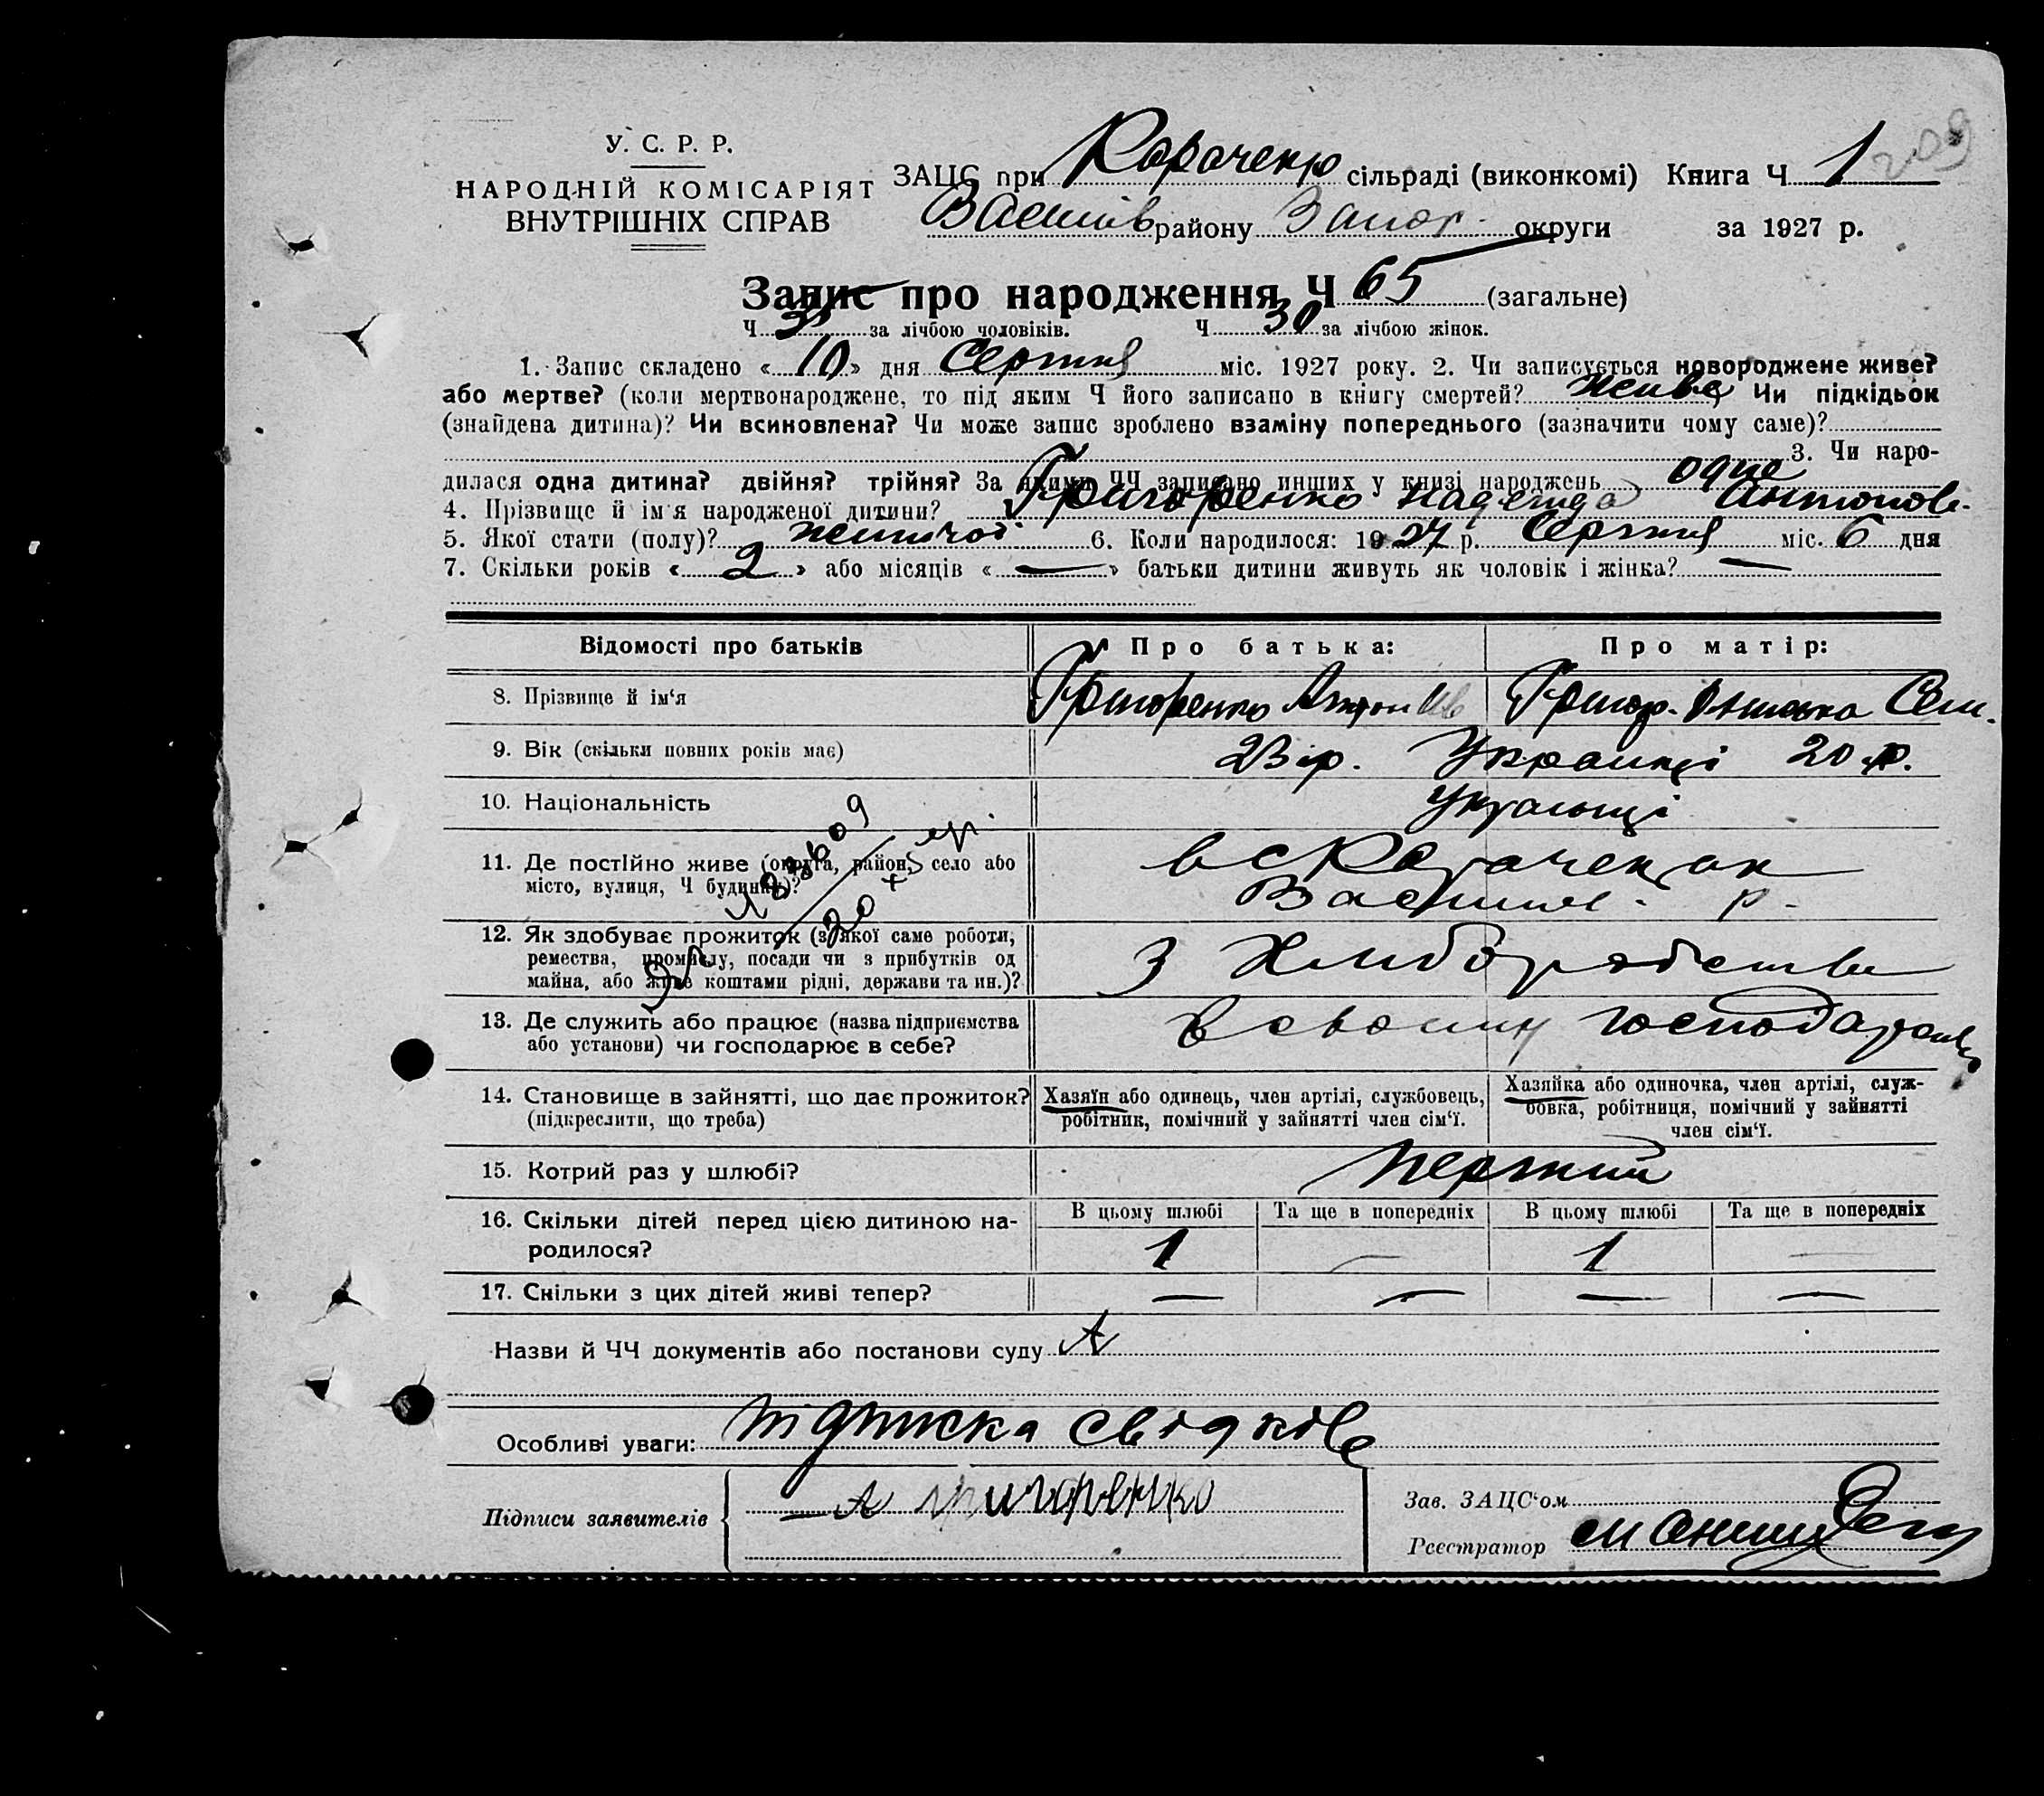 209
У. С. Р. Р.
НАРОДНІЙ КОМІСАРІЯТ
ВНУТРІШНІХ СПРАВ
ЗАЦС при сільраді (виконкомі) Книга Ч. 1
Василів району Запор. округи за 1927 р.
Запис про народження Ч 65 (загальне)
Ч. 35 за лічбою чоловіків. Ч. 30 за лічбою жінок.
1. Запис складено « 10 » дня Серпня міс. 1927 року. 2. Чи записується новороджене живе?
або мертве? (коли мертвонароджене, то під яким Ч його записано в книгу смертей? живе Чи підкідьок
(знайдена дитина)? Чи всиновлена? Чи може запис зроблено взаміну попереднього (зазначити чому саме)?
3. Чи наро-
дилася одна дитина? двійня? трійня? За якими ЧЧ записано инших у книзі народжень одна
4. Прізвище й ім'я народженої дитини? Григоренко Надежда Антонов.
5. Якої стати (полу)? жіночої 6. Коли народилося: 1927 р. Серпня міс. 6 дня
7. Скільки років « 2 » або місяців « — » батьки дитини живуть як чоловік і жінка? —
Відомості про батьків Про батька: Про матір:
8. Прізвище й ім'я Григоренко Антон Ів Григор. Сем.
9. Вік (скільки повних років має) 23 р. Українці 20 р.
10. Національність Українці
11. Де постійно живе (округа, район, село або
місто, вулиця, Ч будинку)? в с
Василів. р.
12. Як здобуває прожиток (з якої саме роботи,
ремества, промислу, посади чи з прибутків од
майна, або живе коштами рідні, держави та ин.)? З Хліборобства
13. Де служить або працює (назва підприємства
або установи) чи господарює в себе? В своему господарстві
14. Становище в зайнятті, що дає прожиток?
(підкреслити, що треба)
Хазяїн або одинець, член артілі, службовець,
робітник, помічний у зайнятті член сім'ї.
Хазяйка або одиночка, член артілі, служ-
бовка, робітниця, помічний у зайнятті
член сім'ї.
15. Котрий раз у шлюбі? перший
16. Скільки дітей перед цією дитиною на-
родилося?
В цьому шлюбі Та ще в попередніх В цьому шлюбі Та ще в попередніх
1 — 1 —
17. Скільки з цих дітей живі тепер? — — — —
Назви й ЧЧ документів або постанови суду
Особливі уваги: підписка свідків
Підписи заявителів А Григоренко
Зав. ЗАЦС'ом
Реєстратор